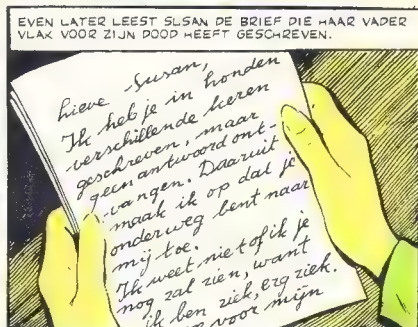 EVEN LATER LEEST SUSAN DE BRIEF DIE HAAR VADER
VLAK VOOR ZIJN DOOD HEEFT GESCHREVEN.
Lieve Susan,
Ik heb je in honden
verschillende keren
geschreven, maar
geen antwoord ont-
vangen. Daaruit
maak ik op dat je
onderweg bent naar
mij toe.
Ik weet niet of ik je
nog zal zien, want
ik ben ziek, erg ziek.
voor mijn